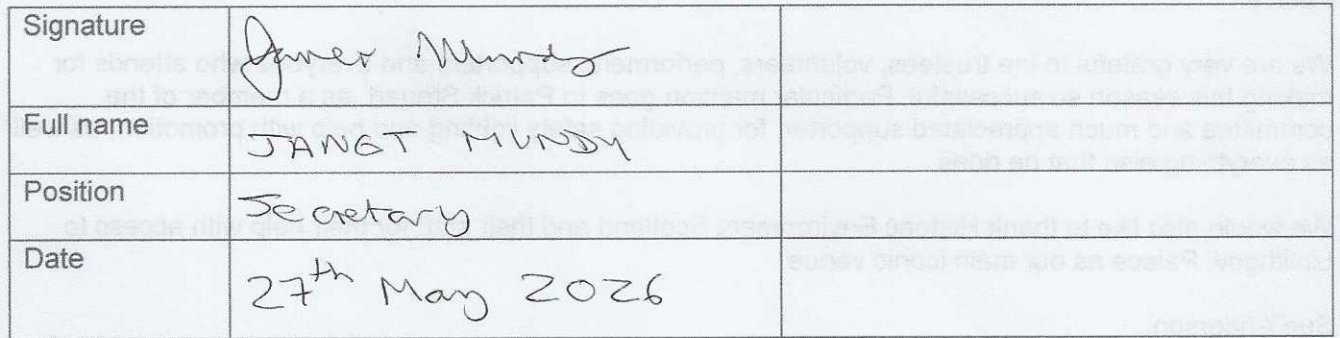 Signature
Janet Mundy
Full name
JANET MUNDY
Position
Secretary
Date
27th May 2026